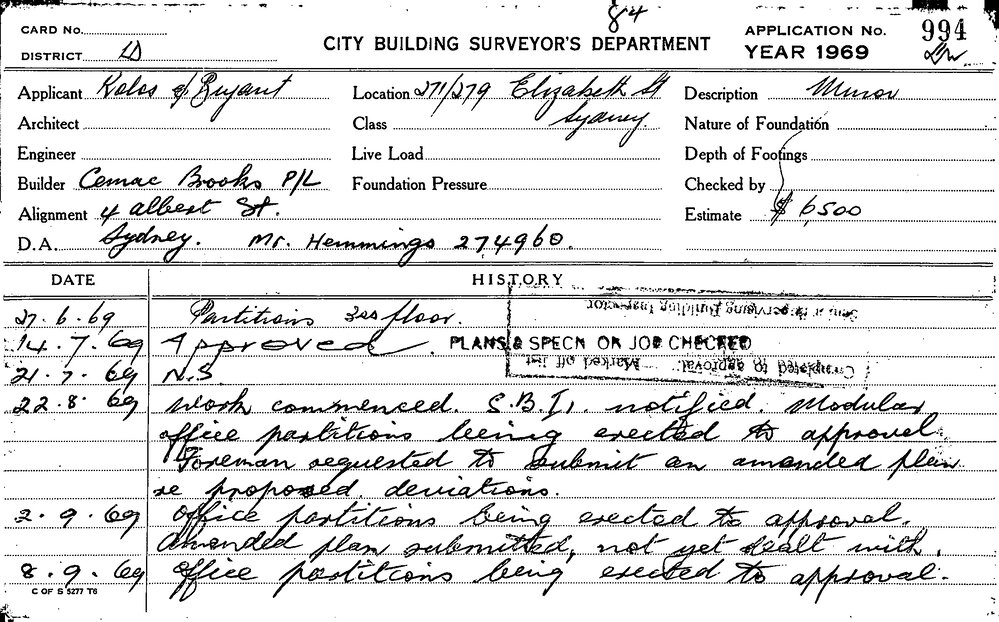 84
CARD No.
CITY BUILDING SURVEYOR'S DEPARTMENT
APPLICATION No. 994
DISTRICT D
YEAR 1969
Applicant Kolos & Bryant
Location 271/279 Elizabeth St
Sydney
Description Minor
Architect
Class
Nature of Foundation
Engineer
Live Load
Depth of Footings
Builder Cemac Brooks P/L
Foundation Pressure
Checked by
Alignment 4 Albert St.
Estimate $ 6500
D.A. Sydney. Mr. Hemmings 274960.
DATE HISTORY
27.6.69 Partitions 3rd floor.
Senior Supervising Building Inspector
14.7.69 Approved. PLANS & SPECN OR JOB CHECKED
Completed to approval. Marked off list
21.7.69 N.S.
22.8.69 Work commenced. S.B.I. notified. Modular
office partitions being erected to approval.
Foreman requested to submit an amended plan
re proposed deviations.
2.9.69 Office partitions being erected to approval.
Amended plan submitted, not yet dealt with.
8.9.69 Office partitions being erected to approval.
C OF S 5277 T6